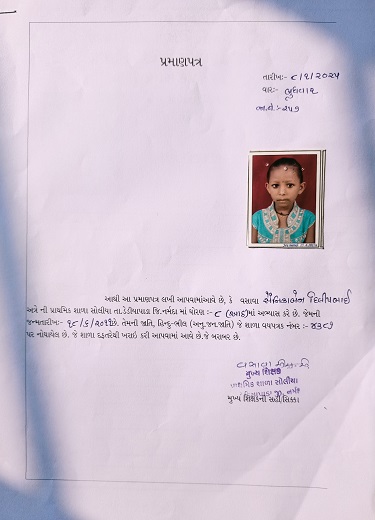 પ્રમાણપત્ર
તારીખઃ- ૮/૧/૨૦૨૫
વારઃ- બુધવાર
જા.નં.:- ૨૫૭
આથી આ પ્રમાણપત્ર લખી આપવામાંઆવે છે, કે વસાવા દિલીપભાઈ
અત્રે ની પ્રાથમિક શાળા સોલીયા તા.ડેડીયાપાડા જિ.નર્મદા માં ધોરણ :- ૮ (આઠ)માં અભ્યાસ કરે છે. જેમની
જન્મતારીખઃ- ૧૮/૬/૨૦૧૧છે. તેમની જાતિ, હિન્દુ-ભીલ (અનુ.જન.જાતિ) જે શાળા વયપત્રક નંબર :- ૪૩૮૭
પર નોંધાયેલ છે. જે શાળા દફતરેથી ખરાઇ કરી આપવામાં આવે છે.જે બરાબર છે.
મુખ્ય શિક્ષક
પ્રાથમિક શાળા સોલીયા
મુખ્ય શિક્ષકની સહી/સિક્કા